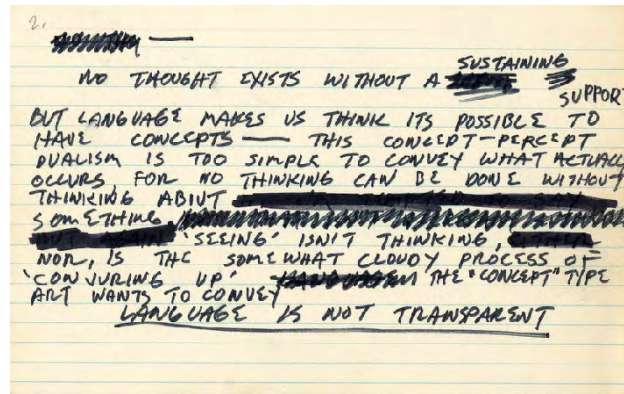 2.
NO THOUGHT EXISTS WITHOUT A SUSTAINING
SUPPORT
BUT LANGUAGE MAKES US THINK ITS POSSIBLE TO
HAVE CONCEPTS — THIS CONCEPT-PERCEPT
DUALISM IS TOO SIMPLE TO CONVEY WHAT ACTUALLY
OCCURS FOR NO THINKING CAN BE DONE WITHOUT
THINKING ABIUT
SOMETHING.
'SEEING' ISN'T THINKING,
NOR, IS THE SOMEWHAT CLOUDY PROCESS OF
'CONJURING UP' THE "CONCEPT" TYPE
ART WANTS TO CONVEY
LANGUAGE IS NOT TRANSPARENT